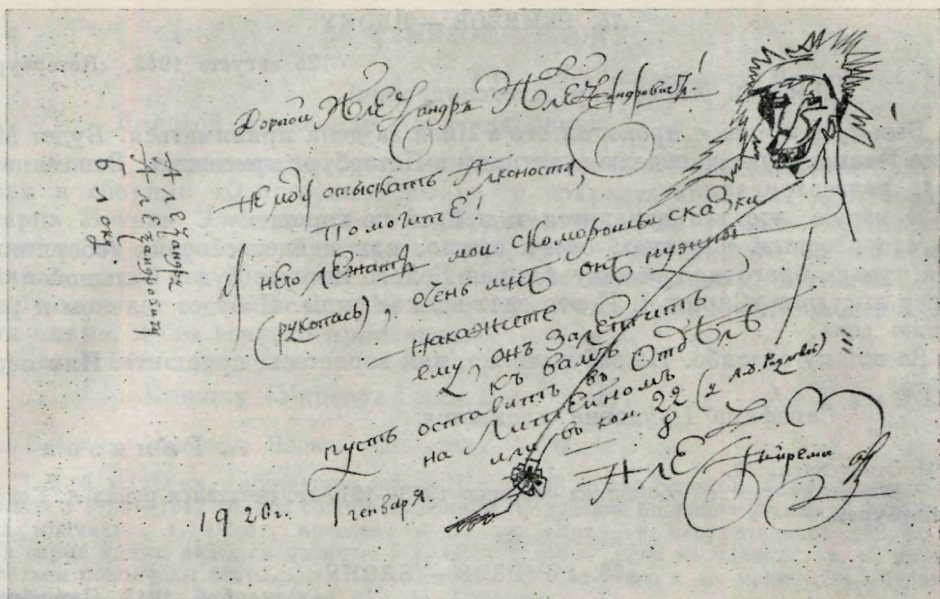 Дорогой Алеѯандръ Алеѯандровичъ!
Не могу отыскать Алконоста,
помогите!
У него лежатъ мои скоморошьи сказки
(рукопись), очень мнѣ онѣ нужны
накажете
ему, онъ залетитъ
къ вамъ
пусть оставитъ въ Отдѣлѣ
на Литейномъ
мнѣ въ ком. 22
8
Але
Ремизовъ
1920 г. генваря
Алеѯандру
Алеѯандровичу
Блоку